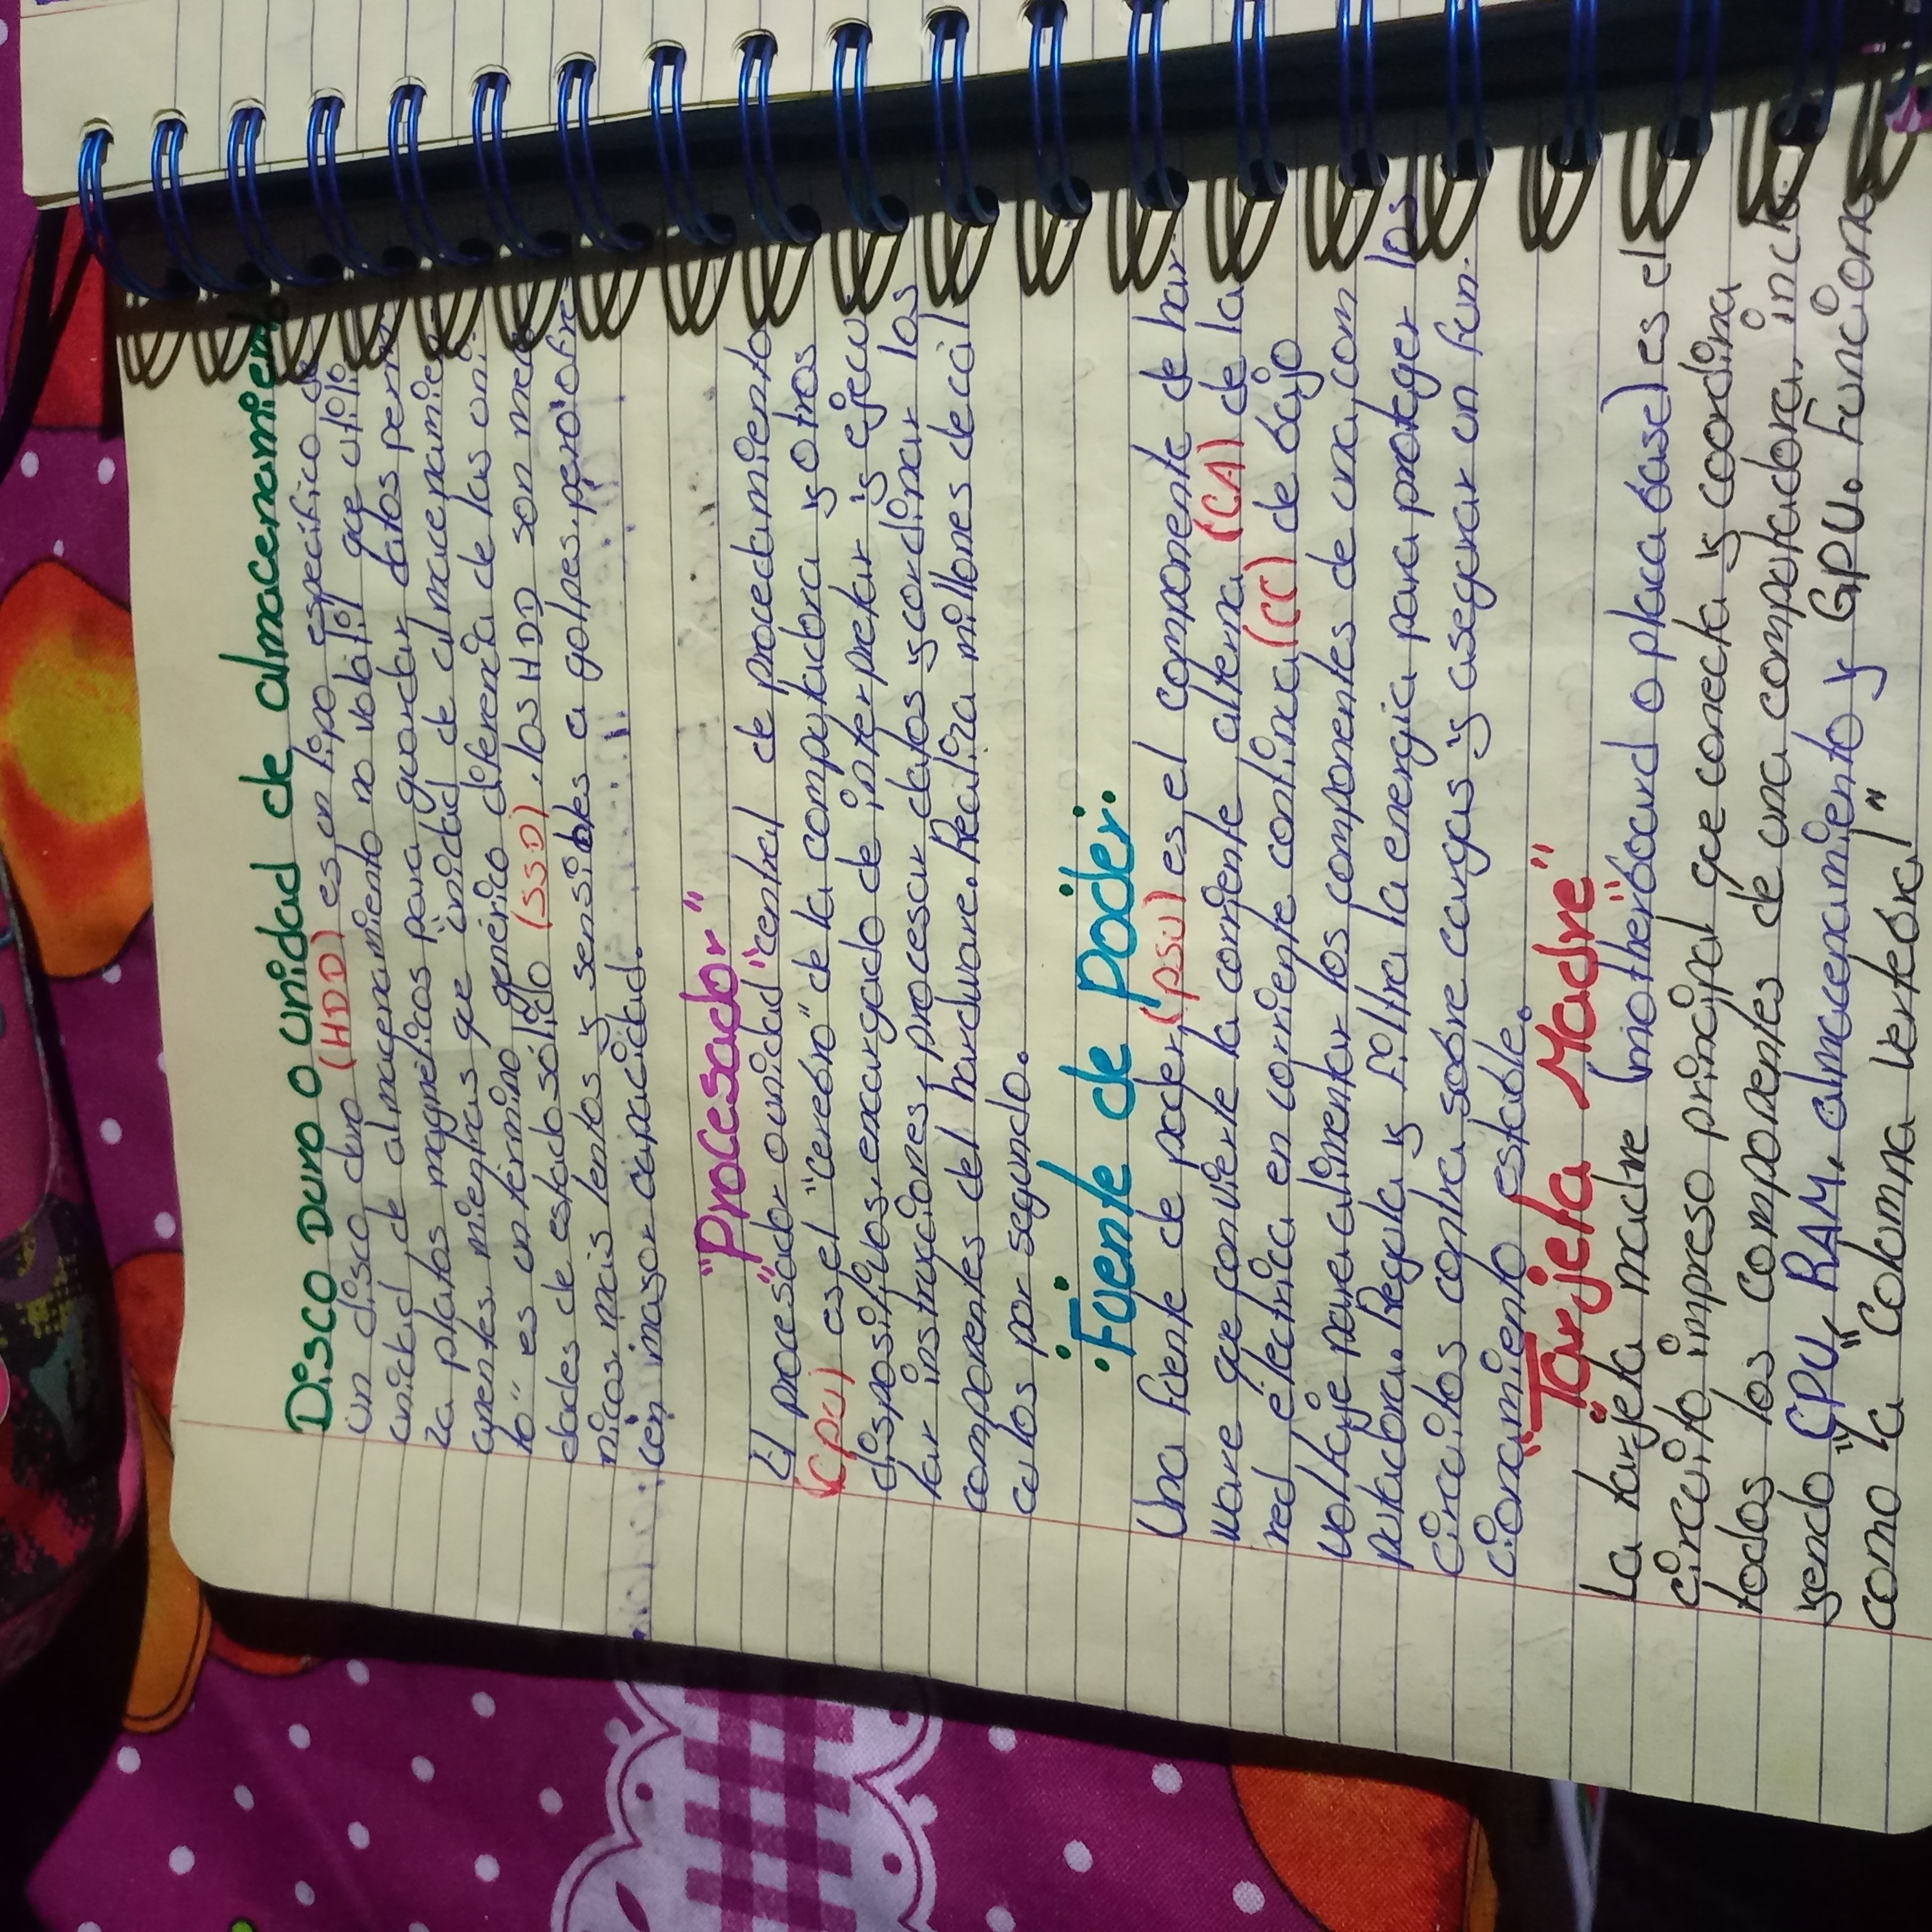 Disco Duro o unidad de almacenamiento
un disco duro (HDD) es un tipo específico de
unidad de almacenamiento no volatil que utili
za platos magneticos para guardar datos perm
anentes. mientras que unidad de almacenamien
to" es un término genérico diferencia de las uni-
dades de estado sólido (SSD), los HDD son mecá
nicos. mais lentos y sensibles a golpes. pero ofre-
cen mayor capacidad.
"Procesador"
El procesador o unidad "central de procedamiento
(cpu) es el "cerebro" de la computadora y otros
dispositivos. encargado de interpretar y ejecu-
tar instrucciones, procesar datos y cordinar los
componentes del hardware. Realiza millones de cál
culos por segundo.
Fuente de Poder:
Una fuente de poder (psu) es el componente de har
ware que convierte la corriente alterna (CA) de la
red eléctrica en corriente continua (CC) de bajo
voltaje para alimentar los componentes de una com
putadora. Regula y filtra la energia para proteger los
circuitos contra sobre cargas y asegurar un fun-
cionamiento estable.
"Tarjeta Madre"
La tarjeta madre (motherboard o placa base) es el
circuito impreso principal que conecta y coordina
todos los componentes de una computadora, inclu-
yendo CPU, RAM, almacenamiento y GPU. Funciona
como la "Columna Vertebral"